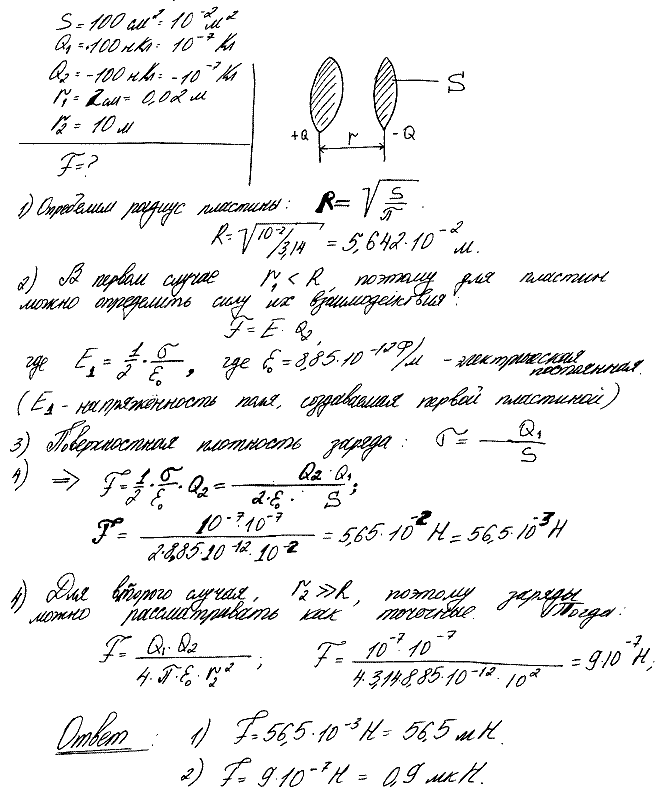 S = 100 см² = 10⁻² м²
Q₁ = 100 нКл = 10⁻⁷ Кл
Q₂ = -100 нКл = -10⁻⁷ Кл
r₁ = 2 см = 0,02 м
r₂ = 10 м
F = ?
S
+Q r -Q
1) Определим радиус пластины: R = √(S/π).
R = √(10⁻²/3,14) = 5,642·10⁻² м.
2) В первом случае r₁ < R, поэтому для пластин
можно определить силу их взаимодействия:
F = E · Q₂,
где E₁ = 1/2 · σ/ε₀, где ε₀ = 8,85·10⁻¹² Ф/м - электрическая
постоянная.
(E₁ - напряжённость поля, создаваемая первой пластиной)
3) Поверхностная плотность заряда: σ = Q₁/S
4) ⇒ F = 1/2 · σ/ε₀ · Q₂ = Q₂·Q₁/(2·ε₀·S);
F = 10⁻⁷·10⁻⁷/(2·8,85·10⁻¹²·10⁻²) = 5,65·10⁻² Н = 56,5·10⁻³ Н
4) Для второго случая, r₂ ≫ R, поэтому заряды
можно рассматривать как точечные. Тогда:
F = Q₁·Q₂/(4·π·ε₀·r₂²); F = 10⁻⁷·10⁻⁷/(4·3,14·8,85·10⁻¹²·10²) = 9·10⁻⁷ Н;
Ответ: 1) F = 56,5·10⁻³ Н = 56,5 мН.
2) F = 9·10⁻⁷ Н = 0,9 мкН.